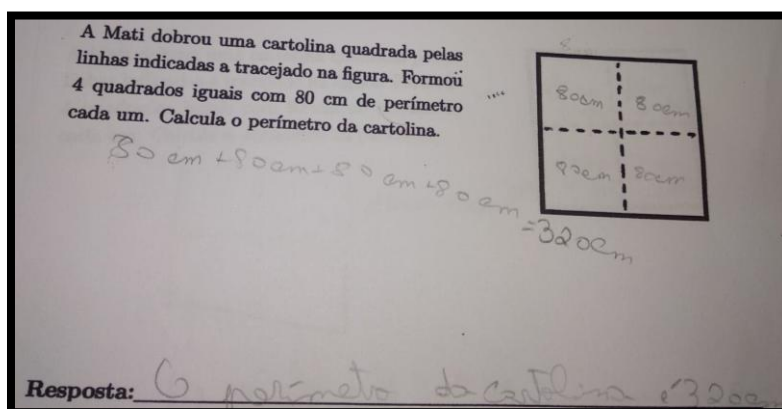 A Mati dobrou uma cartolina quadrada pelas
linhas indicadas a tracejado na figura. Formou
4 quadrados iguais com 80 cm de perímetro
cada um. Calcula o perímetro da cartolina.
80cm 80cm
80cm 80cm
80 cm + 80cm + 80 cm + 80 cm
=320cm
Resposta: O perímetro da cartolina é 320cm